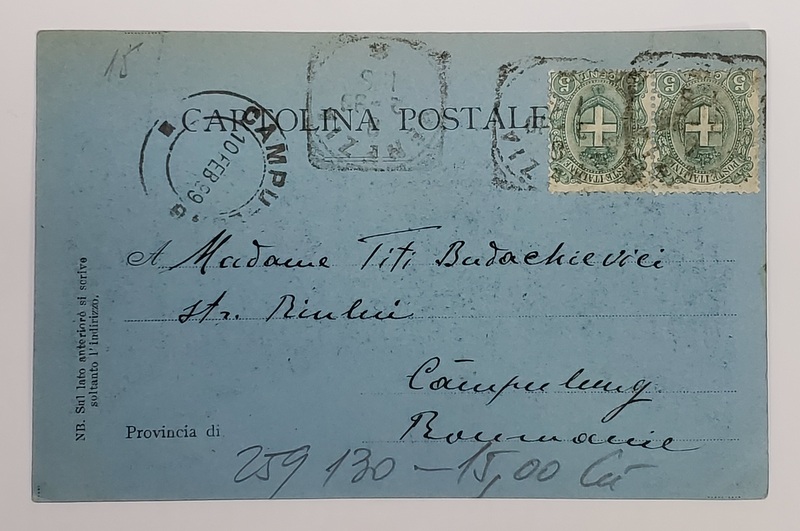 15
CARTOLINA POSTALE
CAMPU
10 FEB 99
A Madame Titi Budachievici
str. Riului
Câmpulung
Roumanie
Provincia di
259 130 – 15,00
NB. Sul lato anteriore si scrive
soltanto l'indirizzo.